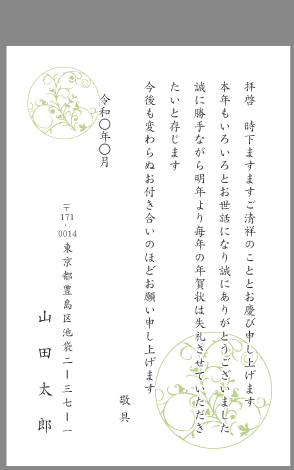 拝啓　時下ますますご清祥のこととお慶び申し上げます
本年もいろいろとお世話になり誠にありがとうございました
誠に勝手ながら明年より毎年の年賀状は失礼させていただき
たいと存じます
今後も変わらぬお付き合いのほどお願い申し上げます
敬具
令和〇年〇月
〒171-0014
東京都豊島区池袋二ー三七ー一
山田太郎